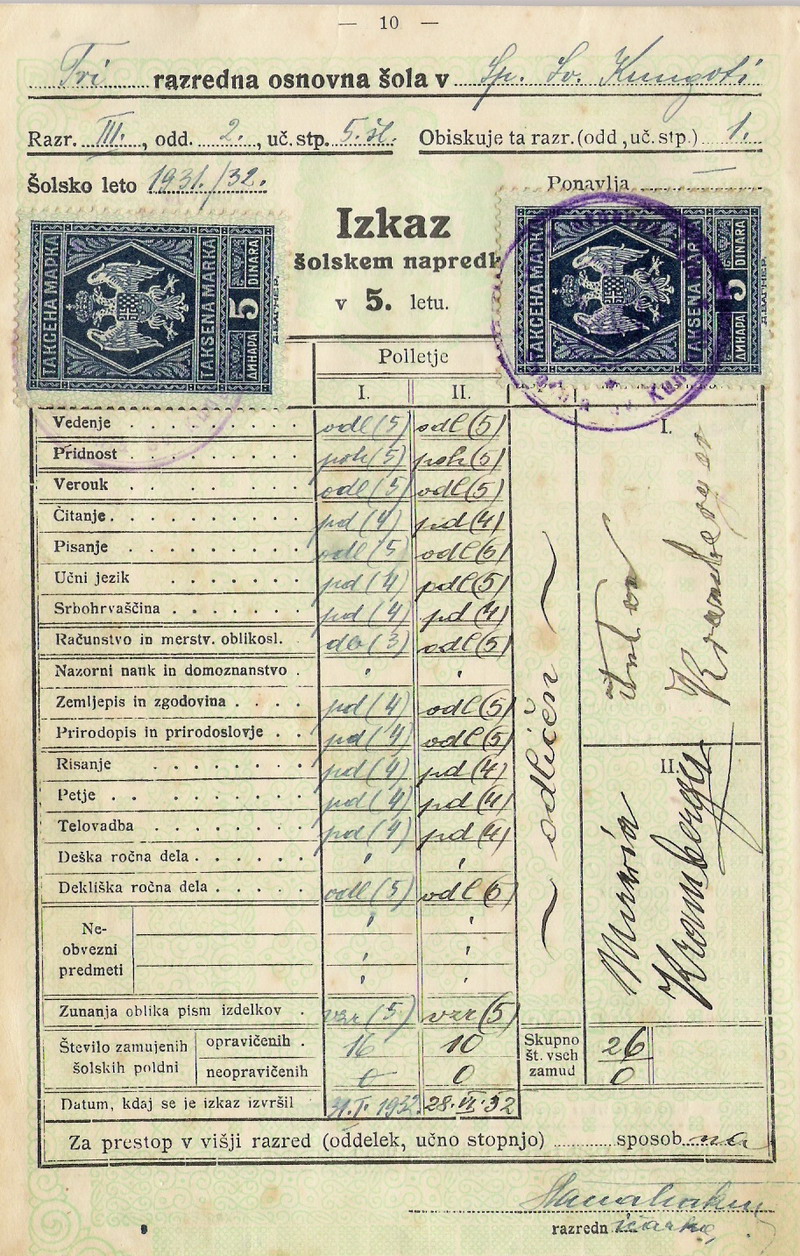 — 10 —
Tri razredna osnovna šola v Sp. Sv. Kungoti
Razr. III., odd. 2., uč. stp. 5. šl. Obiskuje ta razr. (odd., uč. stp.) 1.
Šolsko leto 1931./32. Ponavlja —
Izkaz
šolskem napredk
v 5. letu.
ТАКСЕНА МАРКА TAKSENA MARKA 5 DINARA ДИНАРА
ТАКСЕНА МАРКА TAKSENA MARKA 5 DINARA ДИНАРА
Polletje
I. II.
Vedenje odl (5) odl (5)
Pridnost poh (5) poh (5)
Verouk odl (5) odl (5)
Čitanje pd (4) pd (4)
Pisanje odl (5) odl (5)
Učni jezik pd (4) pdl (5)
Srbohrvaščina pd (4) pd (4)
Računstvo in merstv. oblikosl. db (3) odl (5)
Nazorni nauk in domoznanstvo
Zemljepis in zgodovina pd (4) odl (5)
Prirodopis in prirodoslovje pd (4) odl (5)
Risanje pd (4) pd (4)
Petje pd (4) pd (4)
Telovadba pd (4) pd (4)
Deška ročna dela
Dekliška ročna dela odl (5) odl (5)
Ne-
obvezni
predmeti
Zunanja oblika pism izdelkov vzr (5) vzr (5)
~ odličen ~
I.
Kramberger
II.
Marija
Kramberger
Število zamujenih
šolskih poldni
opravičenih 16 10
neopravičenih 0 0
Skupno
št. vseh
zamud
26
0
Datum, kdaj se je izkaz izvršil 31. I. 1932. 28. VI. 32
Za prestop v višji razred (oddelek, učno stopnjo) sposobna
razredničarka